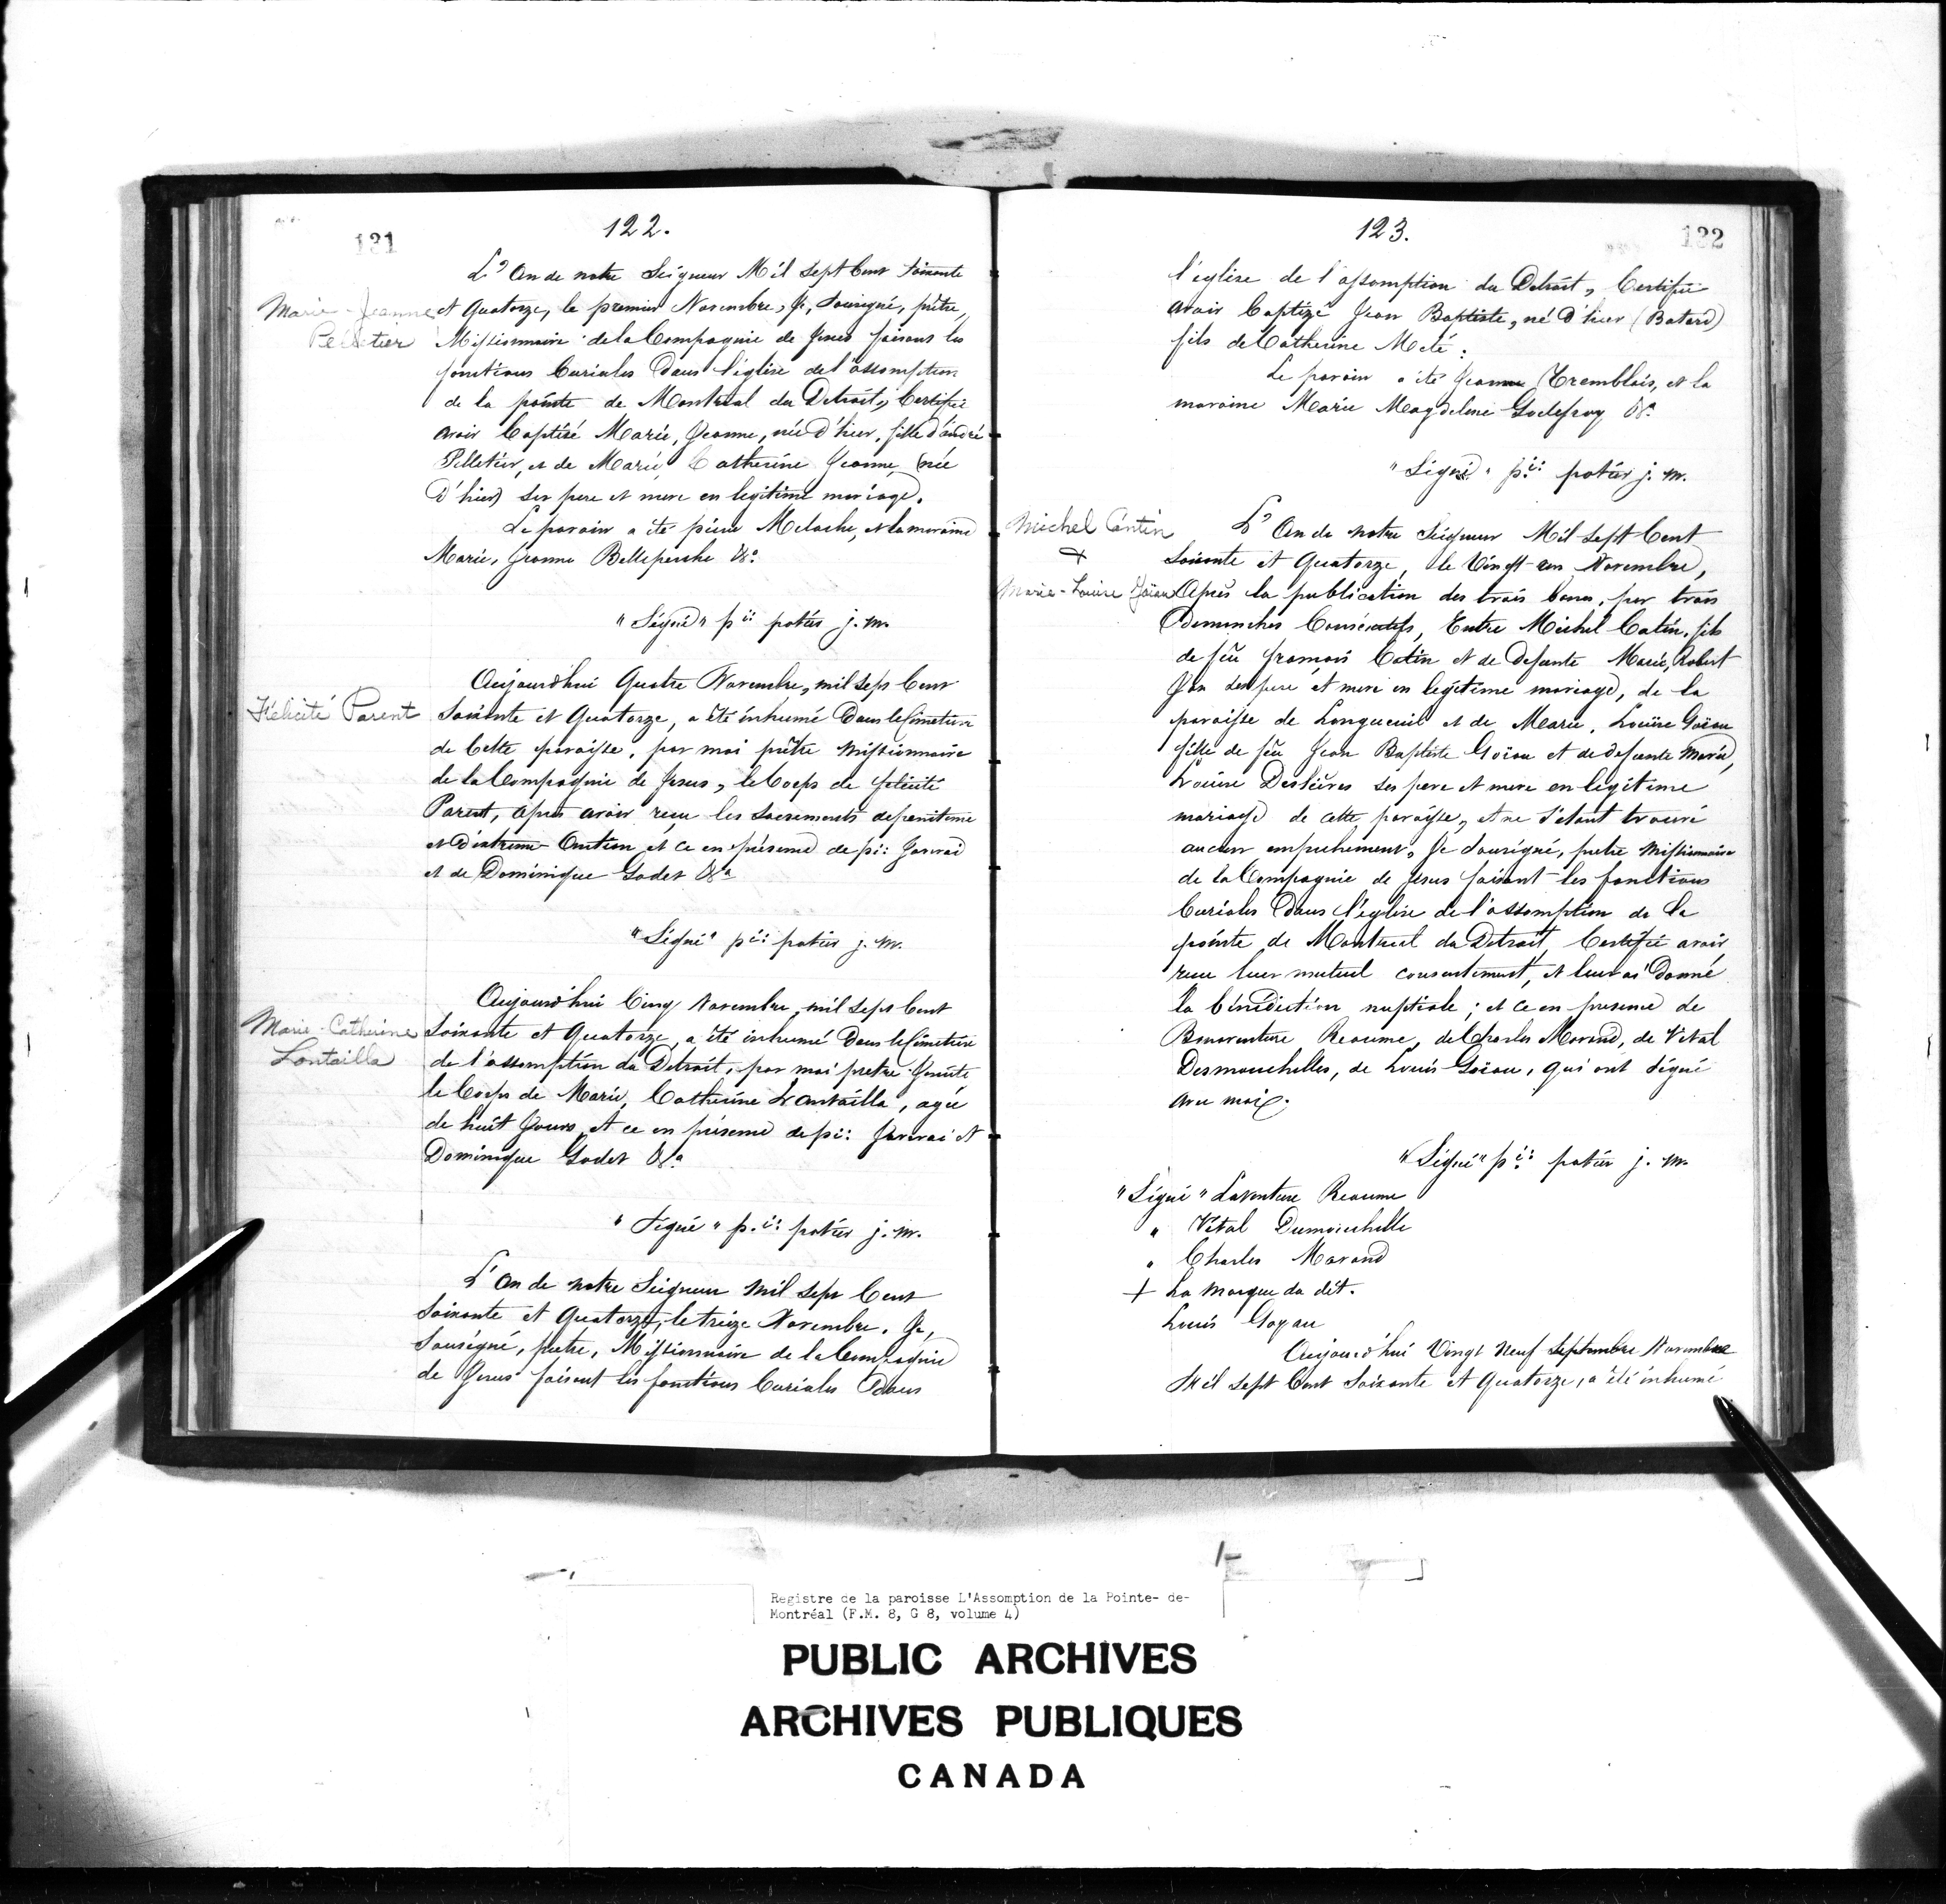 121
122.
L'An de notre Seigneur Mil Sept Cent Soixante
Marie-Jeanne Pelletier
et Quatorze, le premier Novembre, Je, Sousigné, prêtre,
Missionnaire de la Compagnie de Jesus faisant les
fonctions Curiales Dans l'église de l'assomption
de la pointe de Montreal du Detroit, Certifie
avoir baptisé Marie, Jeanne, née d'hier, fille d'andré
Pelletier, et de Marie Catherine Jeanne, (née
D'hier) ses pere et mere en legitime mariage.
Le parain a ité pierre Meloche, et la maraine
Marie, Jeanne Belleperche &a
"Signé" pii potier j. m.
Aujourd'hui Quatre Novembre, mil Sept Cent
Félicité Parent
Soixante et Quatorze, a été inhumé Dans le Cimetiere
de Cette paroisse, par moi prêtre Missionnaire
de la Compagnie de Jesus, le Corps de felicité
Parent, apres avoir reçu les Sacrements de penitence
et d'extreme Onction et ce en présence de pi: Janvai
et de Dominique Godet &a
"Signé" pii potier j. m.
Aujourd'hui Cinq Novembre, mil Sept Cent
Marie-Catherine Lontailla
Soixante et Quatorze, a été inhumé Dans le Cimetiere
de l'assomption du Detroit, par moi pretre Jesuite
le Corps de Marie, Catherine Lontailla, agée
de huit Jours, et ce en présence de pi: Janvrai et
Dominique Godet &a
"Signé" p.ii potier j. m.
L'An de notre Seigneur Mil Sept Cent
Soixante et Quatorze, le treize Novembre. Je,
Sousigné, pretre, Missionnaire de la Compagnie
de Jesus faisant les fonctions Curiales Dans
123.
122
l'église de l'assomption du Detroit, Certifie
avoir baptizé Jean Baptiste, né D'hier (Batard)
fils de Catherine Meté:
Le parain a ité Jeanne Tremblais, et la
maraine Marie Magdelene Godefroy &a
"Signé" pii potier j. m.
Michel Cantin
+
Marie-Louise Goiau
L'An de notre Seigneur Mil Sept Cent
Soixante et Quatorze, le Vingt-un Novembre,
Apres la publication des trois bans, par trois
Demanches Consécutifs, Entre Michel Catin, fils
de feu françois Catin et de Defunte Marie, Robert
Jan ses pere et mere en legitime mariage, de la
paroisse de Longueuil et de Marie, Louise Goiau
fille de feu Jean Baptiste Goiau et de defunte Marie,
Louise Deslièvres ses pere et mere en legitime
mariage de cette paroisse, et ne S'étant trouvé
aucun empechement, Je Sousigné, pretre Missionnaire
de la Compagnie de Jesus faisant les fonctions
Curiales Dans l'église de l'assomption de la
pointe de Montreal du Detroit, Certifie avoir
reçu leur mutuel consentement, et leur ai Donné
la bénédiction nuptiale; et ce en presence de
Bonaventure Reaume, de Charles Morand, de Vital
Desmouchelles, de Louis Goiau, qui ont Signé
avec moi.
"Signé" pii potier j. m.
"Signé" Laventure Reaume
" Vital Dumouchelle
" Charles Marand
+ La marque du dit.
Louis Goyau
Aujourd'hui Vingt Neuf septembre Novembre
Mil Sept Cent Soixante et Quatorze, a été inhumé
Registre de la paroisse L'Assomption de la Pointe- de-
Montréal (F.M. 8, G 8, volume 4)
PUBLIC ARCHIVES
ARCHIVES PUBLIQUES
CANADA